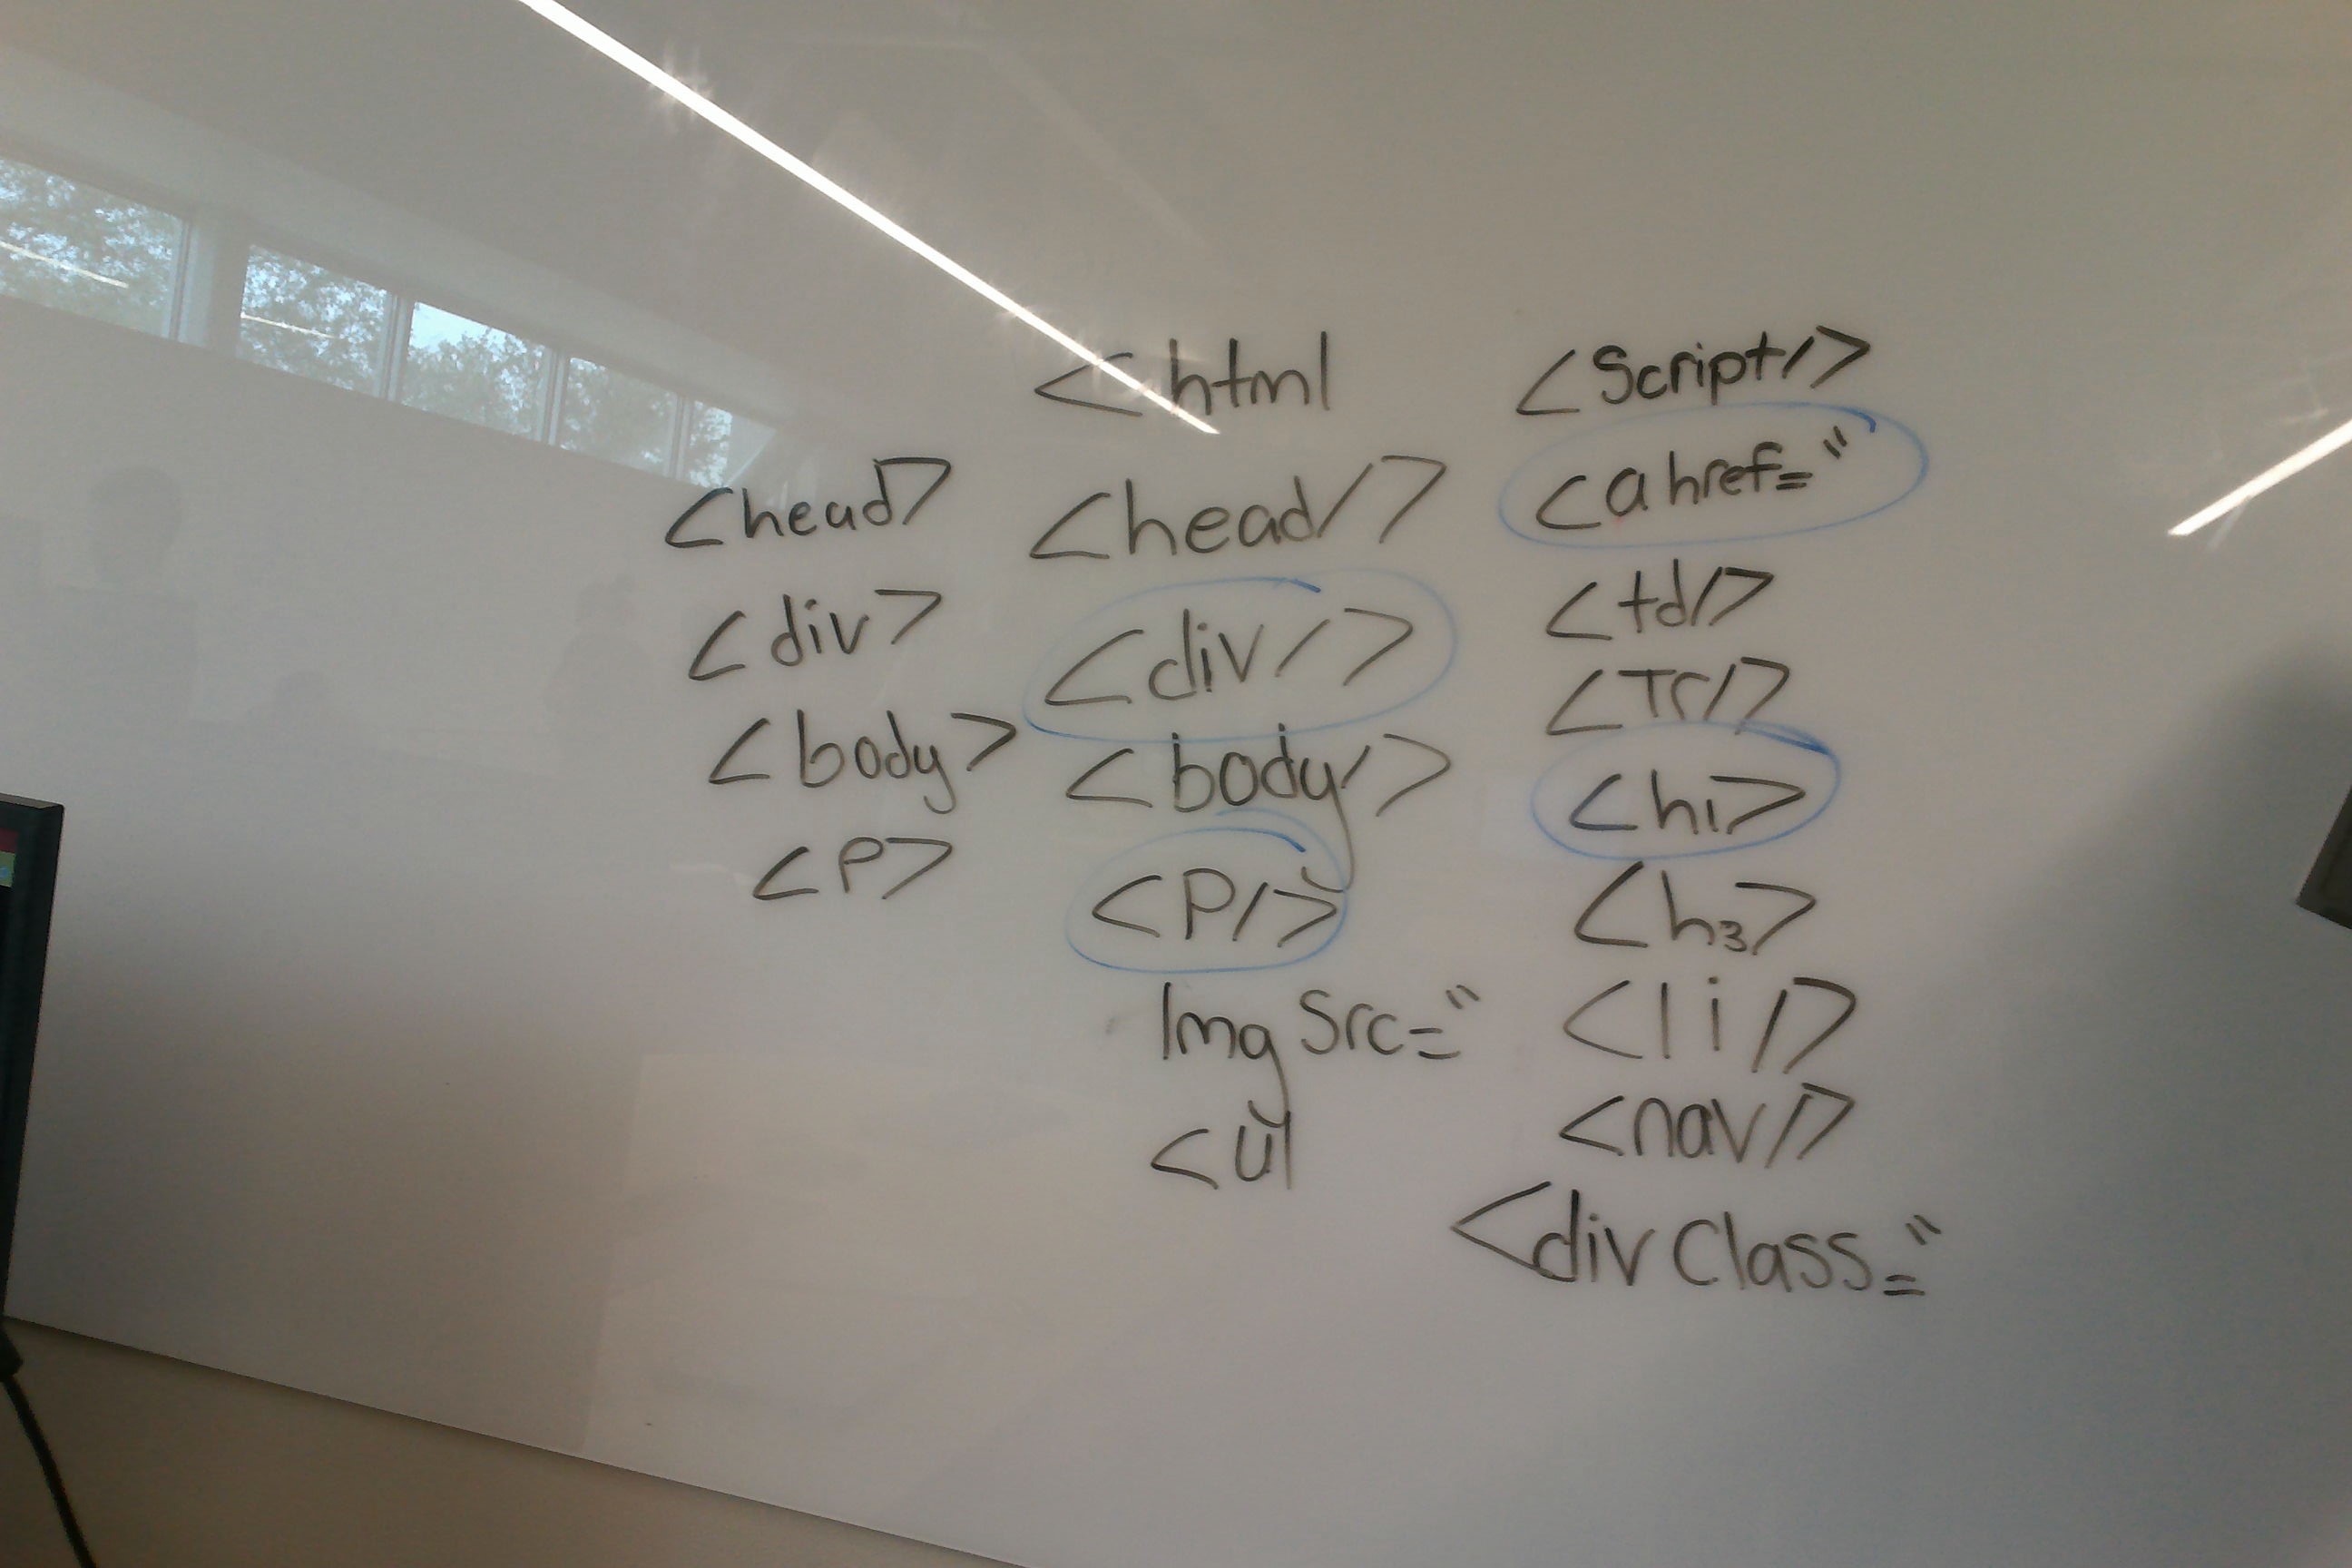 <head>
<div>
<body>
<P>
<html
<head/>
<div/>
<body/>
<P/>
Img Src="
<ul
<Script/>
<a href="
<td/>
<Tr/>
<h1>
<h3>
<li/>
<nav/>
<div Class="